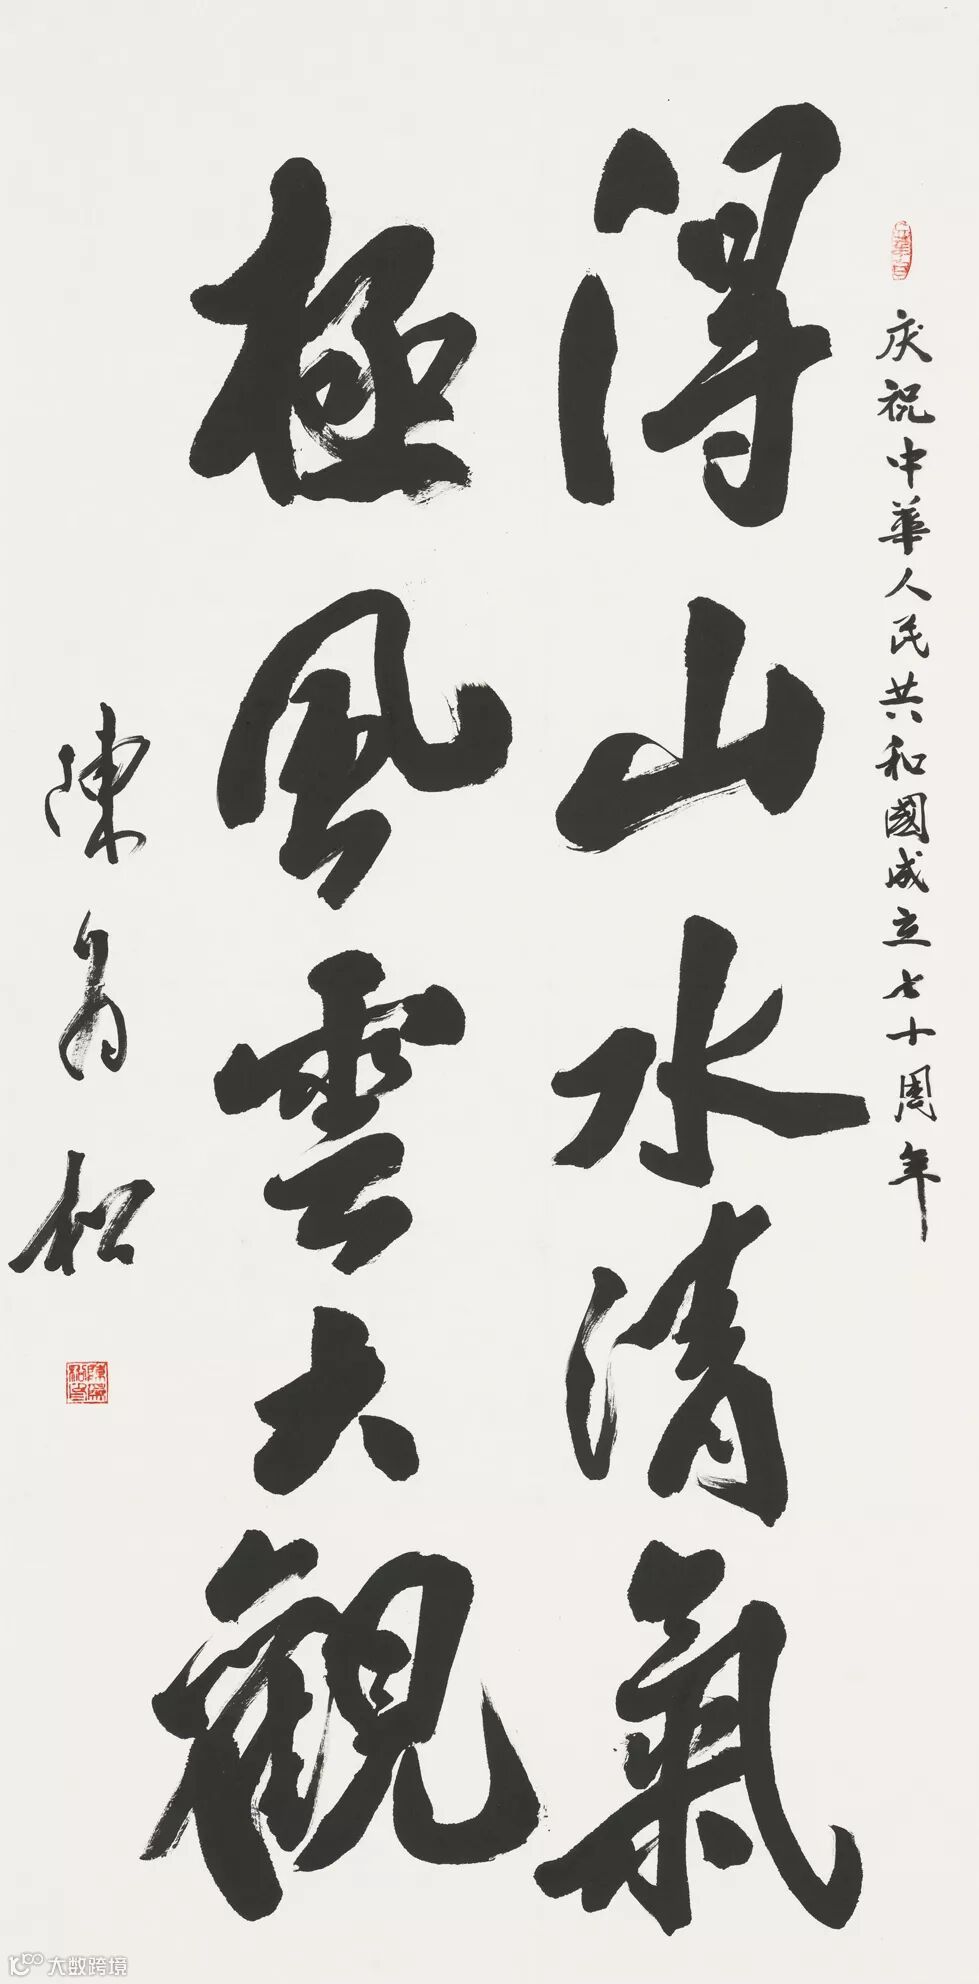 庆祝中華人民共和國成立七十周年
得山水清氣
極風雲大觀
陳 松
大数跨境